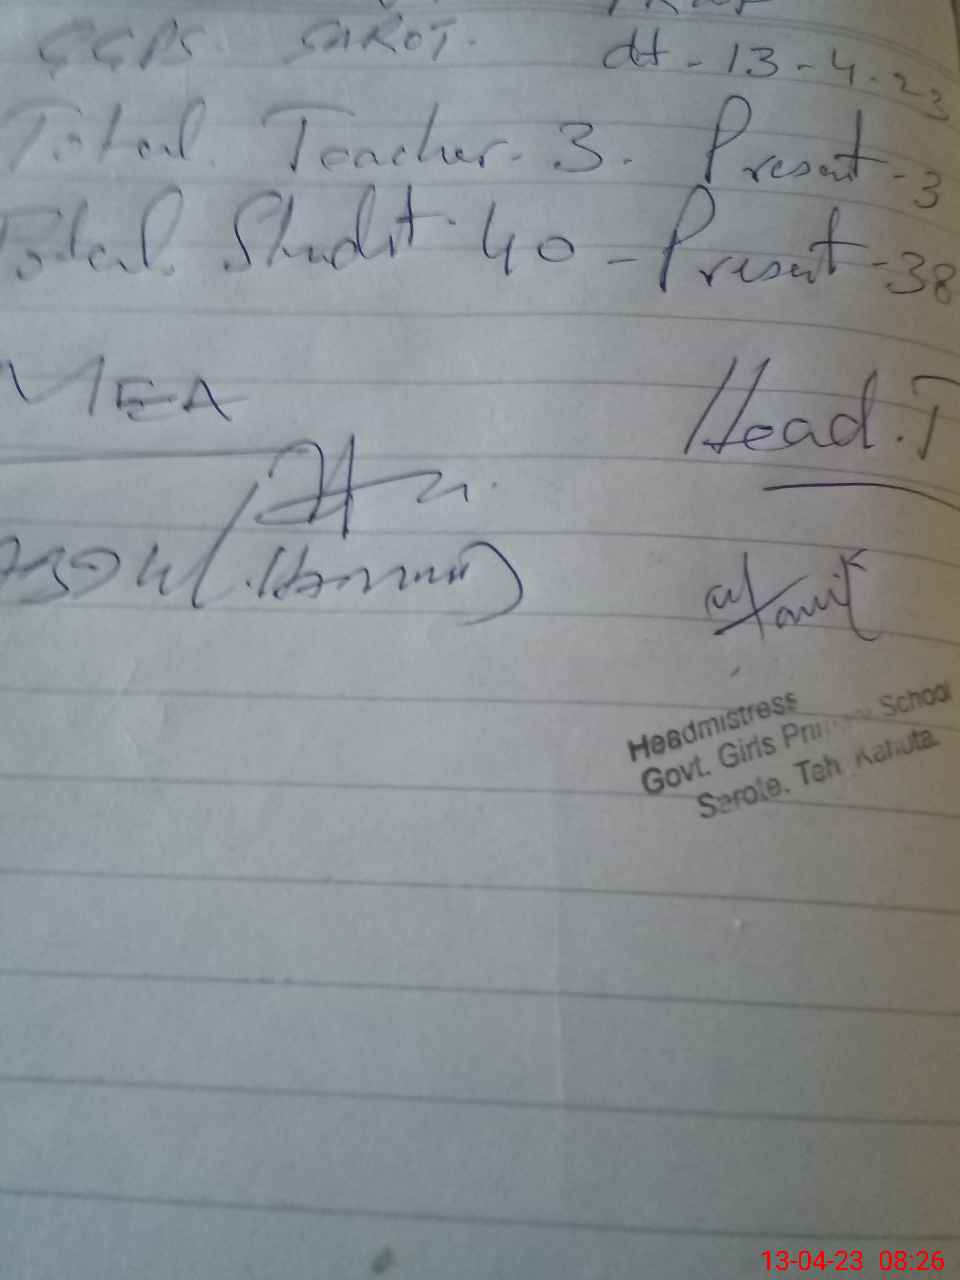 GGPS SAROT.
dt - 13-4-23
Total Teacher. 3. Present - 3
Total Studit. 40 - Present - 38
MEA
Head.T
Headmistress
Govt. Girls Primary School
Sarote. Teh Kahuta
13-04-23 08:26